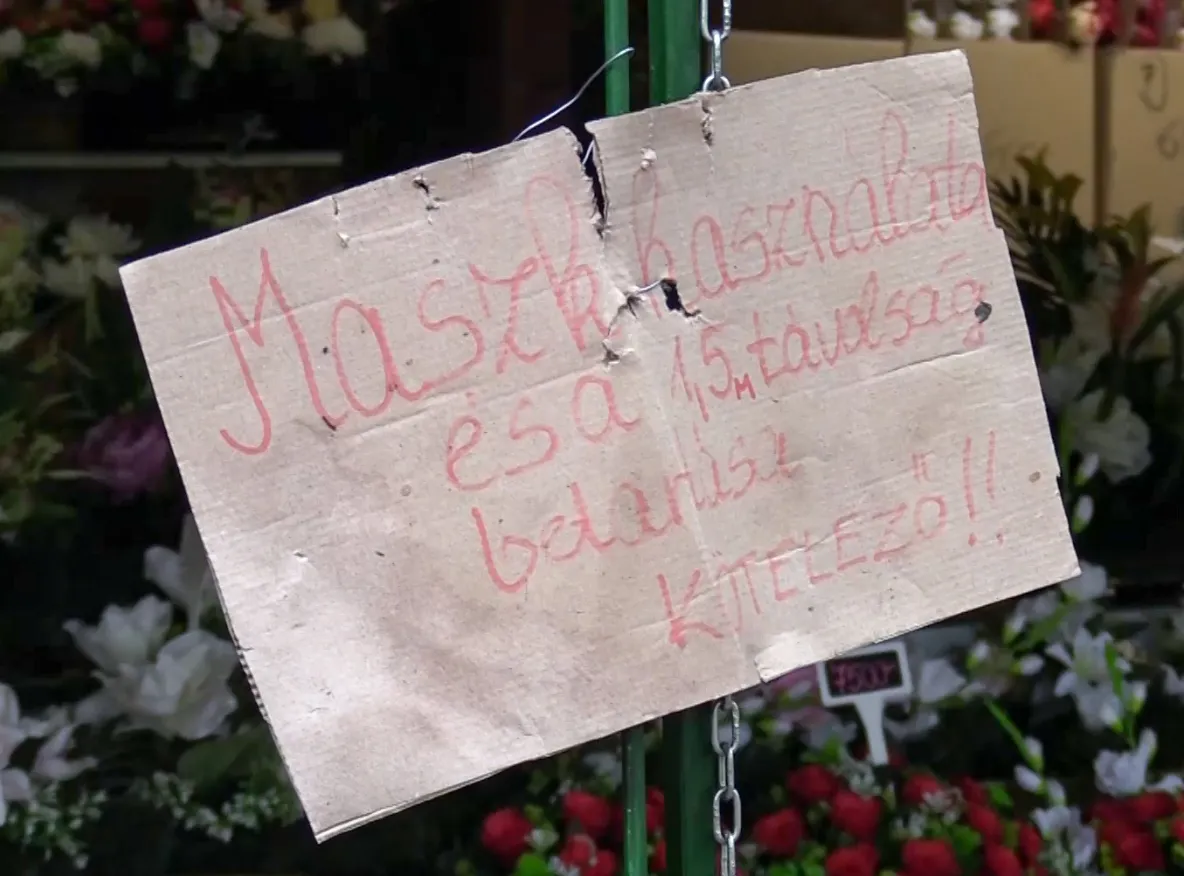 Maszk használata
és a 1,5m távolság
betartása
KÖTELEZŐ!!
7500